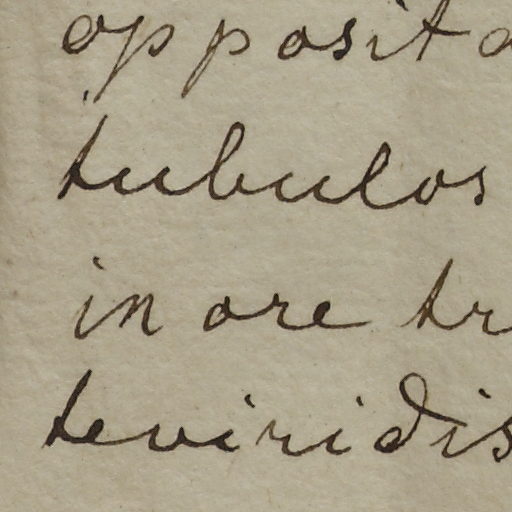 opposita
tubulos
in ore tr
teviridis